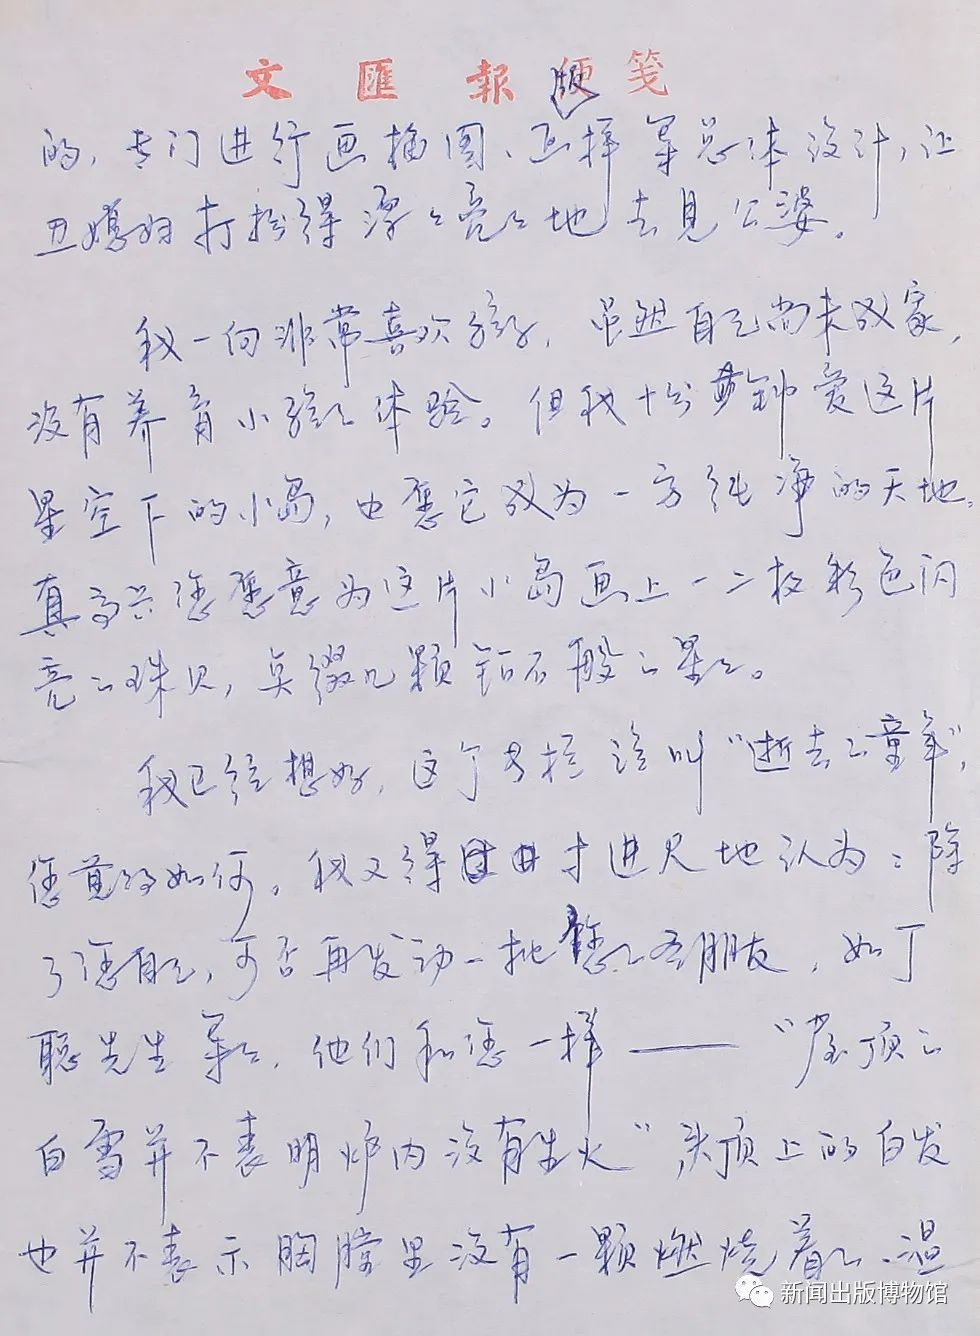 文匯報便笺
版
的，专门进行画插图、画择等总体设计，让
丑媳妇打扮得漂漂亮亮地去见公婆。
我一向非常喜欢孩子，虽然自己尚未成家，
没有养育小孩之体验。但我十分钟爱这片
星空下的小岛，也愿它成为一方纯净的天地。
真高兴您愿意为这片小岛画上一二枚彩色闪
亮之珠贝，点缀几颗钻石般之星星。
我已经想好，这个专栏该叫“逝去之童年”，
您觉的如何。我又得寸进尺地认为：除
了您自己，可否再发动一批您之老朋友，如丁
聪先生等等，他们和您一样——“屋顶之
白雪并不表明炉内没有生火”头顶上的白发
也并不表示胸膛里没有一颗燃烧着之、温
新闻出版博物馆